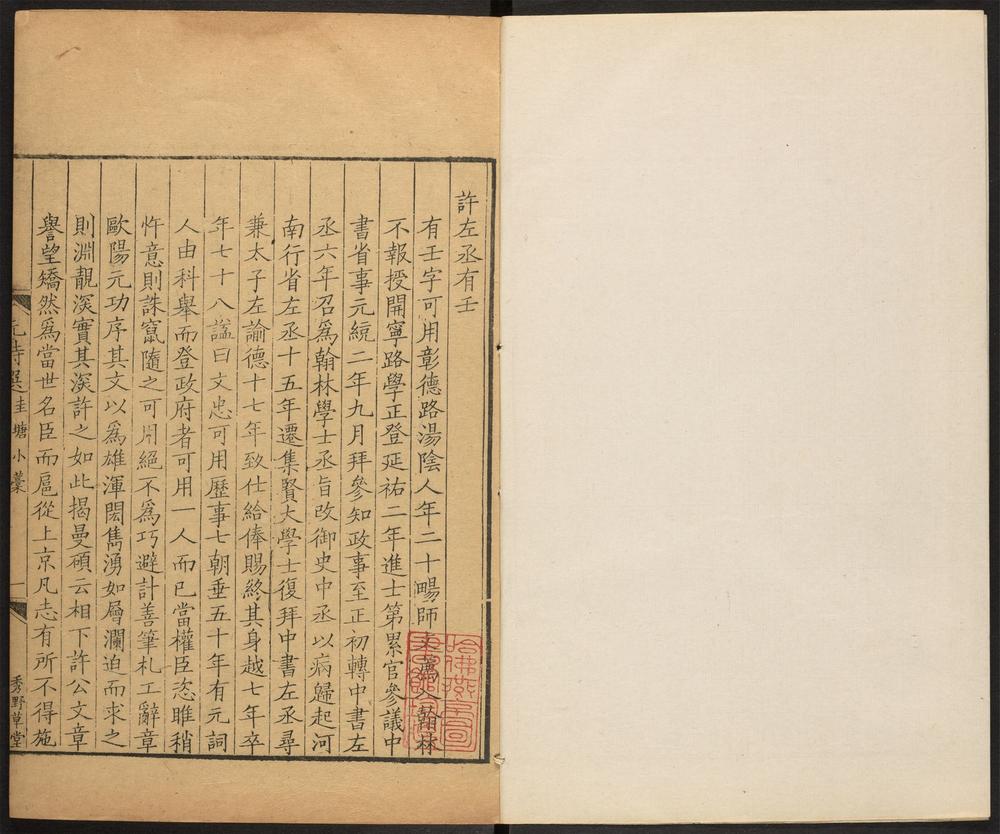 許左丞有壬
有壬字可用彰德路湯陰人年二十暢師文薦入翰林
不報授開寧路學正登延祐二年進士第累官參議中
書省事元統二年九月拜參知政事至正初轉中書左
丞六年召爲翰林學士丞旨改御史中丞以病歸起河
南行省左丞十五年遷集賢大學士復拜中書左丞尋
兼太子左諭德十七年致仕給俸賜終其身越七年卒
年七十八諡曰文忠可用歷事七朝垂五十年有元詞
人由科舉而登政府者可用一人而已當權臣恣睢稍
忤意則誅竄隨之可用絕不爲巧避計善筆札工辭章
歐陽元功序其文以爲雄渾閎雋湧如層瀾迫而求之
則淵靚深實其深許之如此揭曼碩云相下許公文章
譽望矯然爲當世名臣而扈從上京凡志有所不得施
元詩選 圭塘小藁 一 秀野草堂